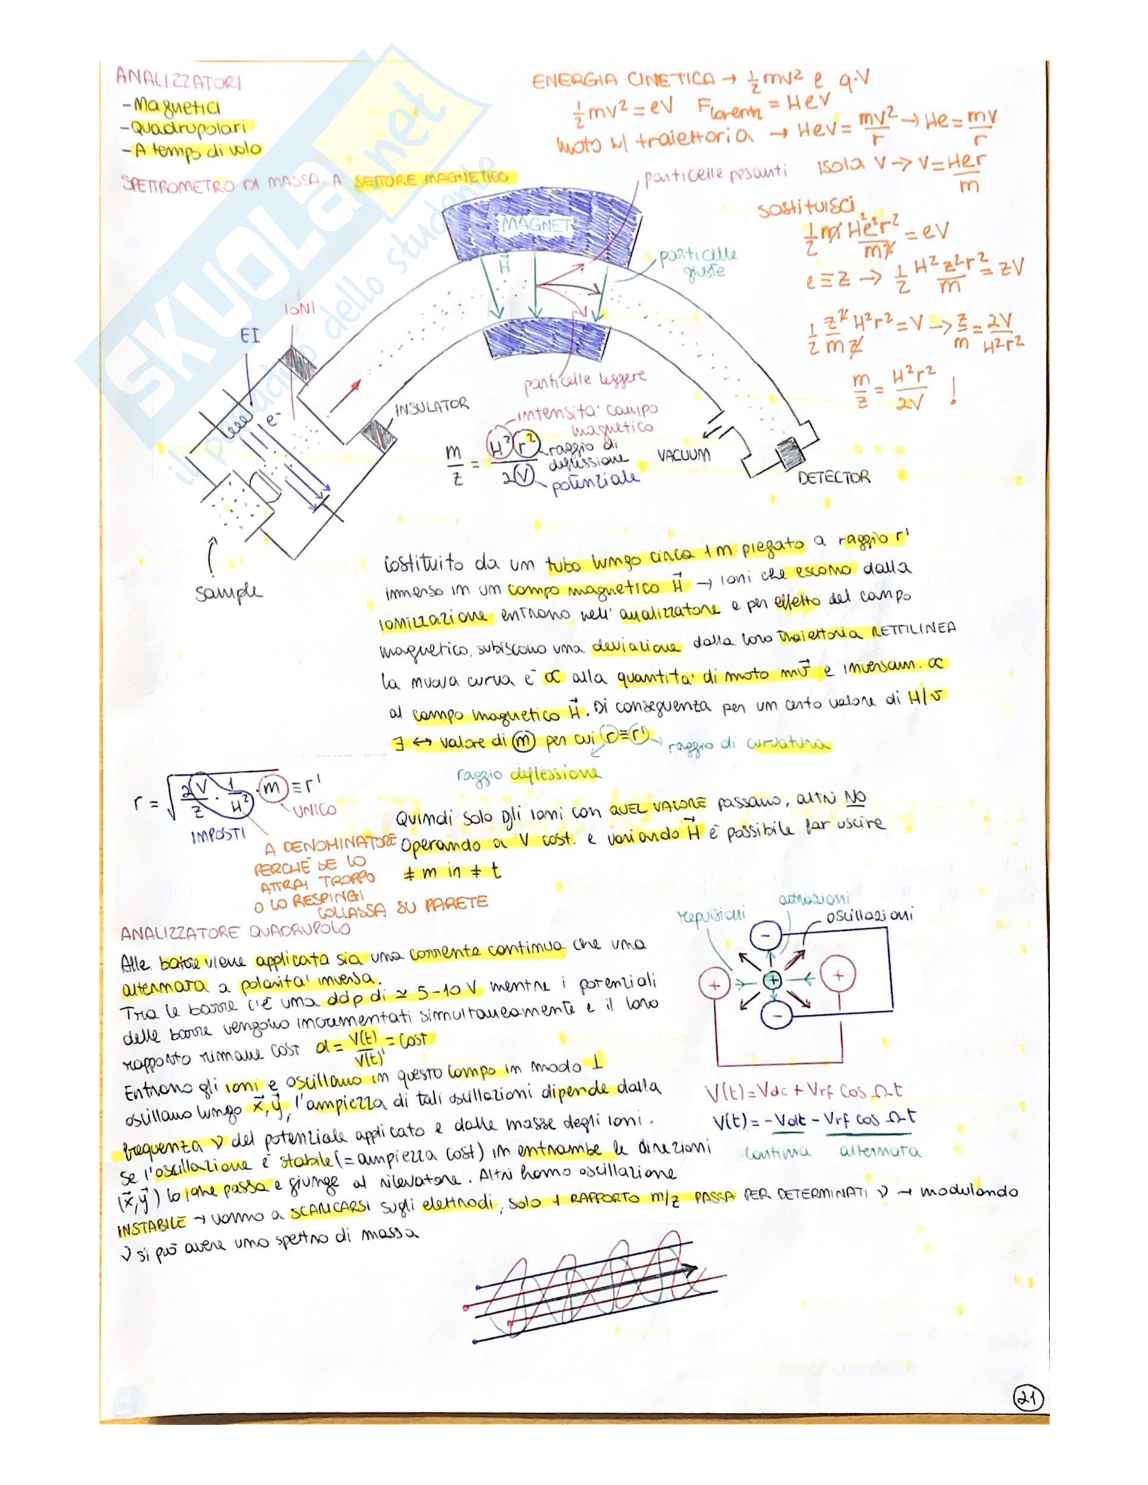 ANALIZZATORI
- Magnetici
- Quadrupolari
- A tempo di volo
SPETTROMETRO DI MASSA A SETTORE MAGNETICO
ENERGIA CINETICA → ½mv² e q·V
½mv² = eV Florentz = HeV
moto w/ traiettoria → HeV = mv²/r → He = mv/r
isola v → v = Her/m
sostituisci
½ m H²e²r²/m² = eV
e ≡ z → ½ H²z²r²/m = zV
½ z²/m z H²r² = V → z/m = 2V/H²r²
m/z = H²r²/2V !
particelle pesanti
MAGNET
H
particelle giuste
particelle leggere
IONI
EI
e⁻
INSULATOR
VACUUM
DETECTOR
Sample
m/z = H² r² / 2V
intensita' campo magnetico
raggio di deflessione
potenziale
Costituito da un tubo lungo circa 1m piegato a raggio r'
immerso in un campo magnetico H → ioni che escono dalla
ionizzazione entrano nell' analizzatore e per effetto del campo
magnetico, subiscono una deviazione dalla loro traiettoria RETTILINEA
La nuova curva è ∝ alla quantita' di moto mv e inversam. ∝
al campo magnetico H. Di conseguenza per un certo valore di H/v
∃ ↔ valore di m per cui r ≡ r'
raggio di curvatura
raggio deflessione
r = √(2V/z · 1/H² · m) ≡ r'
UNICO
IMPOSTI
A DENOMINATORE
PERCHÉ SE LO
ATTRAI TROPPO
O LO RESPINGI
COLLASSA SU PARETE
Quindi solo gli ioni con QUEL VALORE passano, altri NO
Operando a V cost. e variando H è possibile far uscire
≠ m in ≠ t
ANALIZZATORE QUADRUPOLO
Alle barre viene applicata sia una corrente continua che una
alternata a polarita' inversa.
Tra le barre c'è una ddp di ≃ 5-10 V mentre i potenziali
delle barre vengono incrementati simultaneamente e il loro
rapporto rimane cost α = V(t)/V(t)' = cost
Entrano gli ioni e oscillano in questo campo in modo ⊥
oscillano lungo x, y, l'ampiezza di tali oscillazioni dipende dalla
frequenza ν del potenziale applicato e dalle masse degli ioni.
Se l'oscillazione è stabile (= ampiezza cost) in entrambe le direzioni
(x,y) lo ione passa e giunge al rilevatore. Altri hanno oscillazione
INSTABILE → vanno a SCARICARSI sugli elettrodi, solo 1 RAPPORTO m/z PASSA PER DETERMINATI ν → modulando
ν si può avere uno spettro di massa
repulsioni
attrazioni
oscillazioni
−
+
+
+
−
V(t) = Vdc + Vrf cos Ω·t
V(t) = -Vdt - Vrf cos Ω·t
continua alternata
21
SKUOLA.net
il paradiso dello studente